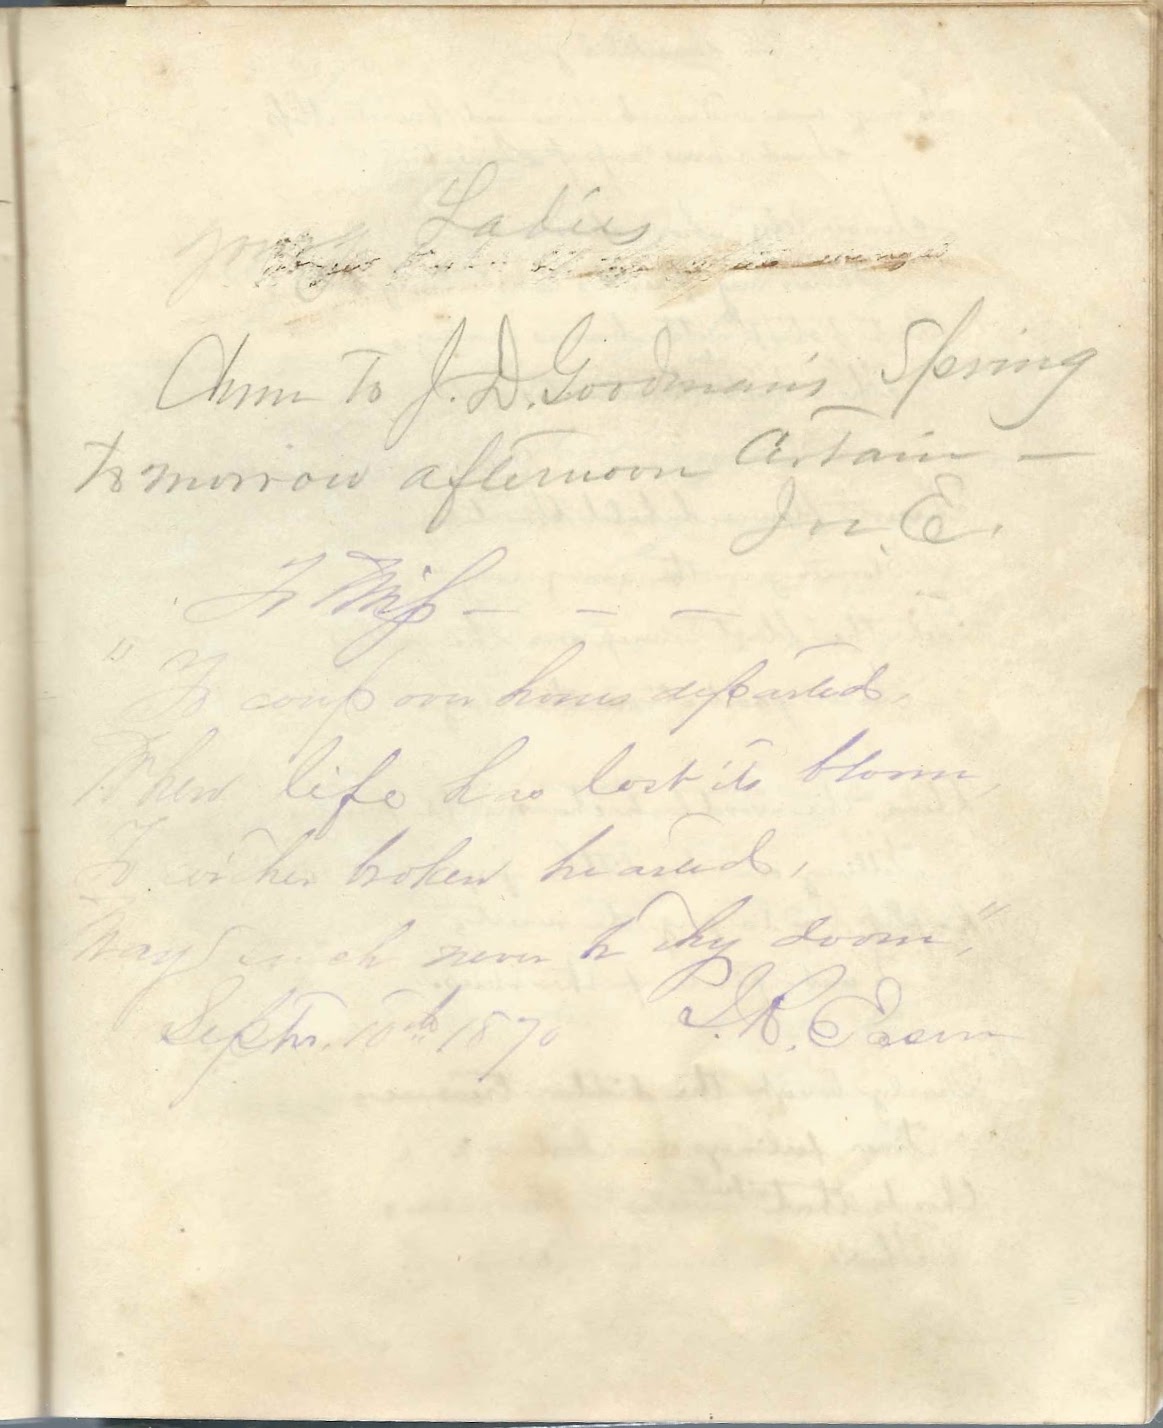 Young Ladies
Chum to J. D. Goodman's Spring
tomorrow afternoon Certain —
Jn. E.
To Miss — — —
"To count over hours departed,
When life has lost its bloom,
To wither broken hearted,
May such never be thy doom,"
Septr. 10th 1870